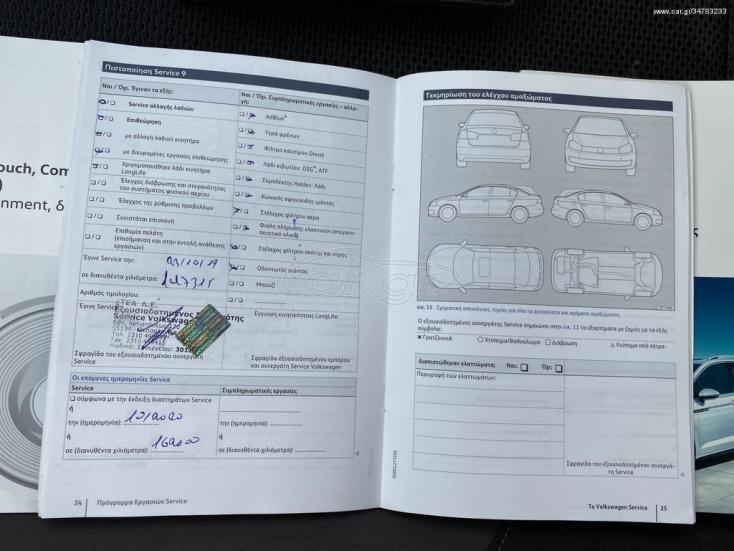 www.car.gr/34783233
ouch, Com
nment, δ
Πιστοποίηση Service 9
Ναι / Όχι. Έγιναν τα εξής:
Service αλλαγής λαδιών
Επιθεώρηση
με αλλαγή λαδιού κινητήρα
με διευρυμένες εργασίες επιθεώρησης
Χρησιμοποιήθηκε λάδι κινητήρα LongLife
Έλεγχος διάβρωσης και στεγανότητας
του συστήματος φυσικού αερίου
Έλεγχος της ρύθμισης προβολέων
Συνιστάται επισκευή
Επιθυμία πελάτη
(επισήμανση και στην εντολή ανάθεσης
εργασιών)
Έγινε Service την: 03/10/19
σε διανυθέντα χιλιόμετρα:
Αριθμός τιμολογίου:
Έγινε Service
ΣΤΕΑ Α.Ε.
Εξουσιοδοτημένος
Service Volkswagen
Σφραγίδα του εξουσιοδοτημένου συνεργάτη
Service
Ναι / Όχι. Συμπληρωματικές εργασίες – αλλα-
γή:
AdBlue®
Υγρά φρένων
Φίλτρο καυσίμου Diesel
Λάδι κιβωτίου: DSG®, ATF
Συμπλέκτης Haldex: Λάδι
Κωνικός αφηνιαστής ιμάντας
Στέλεχος φίλτρου αέρα
Φιάλη πλήρωσης ελαστικών (στεγανο-
ποιητικό υλικό)
Στέλεχος φίλτρου σκόνης και γύρης
Οδοντωτός ιμάντας
Μπουζί
Εγγύηση κινητικότητας LongLife:
Σφραγίδα εξουσιοδοτημένου εμπόρου
και συνεργάτη Service Volkswagen
Οι επόμενες ημερομηνίες Service
Service
Συμπληρωματικές εργασίες
σύμφωνα με την ένδειξη διαστημάτων Service
ή
την (ημερομηνία): 10/2020
την (ημερομηνία):
ή
ή
σε (διανυθέντα χιλιόμετρα): 162000
σε (διανυθέντα χιλιόμετρα):
24 Πρόγραμμα Εργασιών Service
Τεκμηρίωση του ελέγχου αμαξώματος
εικ. 11 Σχηματική απεικόνιση, ισχύει για όλα τα αυτοκίνητα και τμήματα αμαξώματος.
Ο εξουσιοδοτημένος συνεργάτης Service σημειώνει στην εικ. 11 τα εξαρτήματα με ζημιές με τα εξής
σύμβολα:
✖ Γρατζουνιά ○ Χτύπημα/Βαθούλωμα □ Διάβρωση △ Χτύπημα από πέτρα
Διαπιστώθηκαν ελαττώματα; Ναι: Όχι:
Περιγραφή των ελαττωμάτων:
Σφραγίδα του εξουσιοδοτημένου συνεργά-
τη Service
Το Volkswagen Service 25